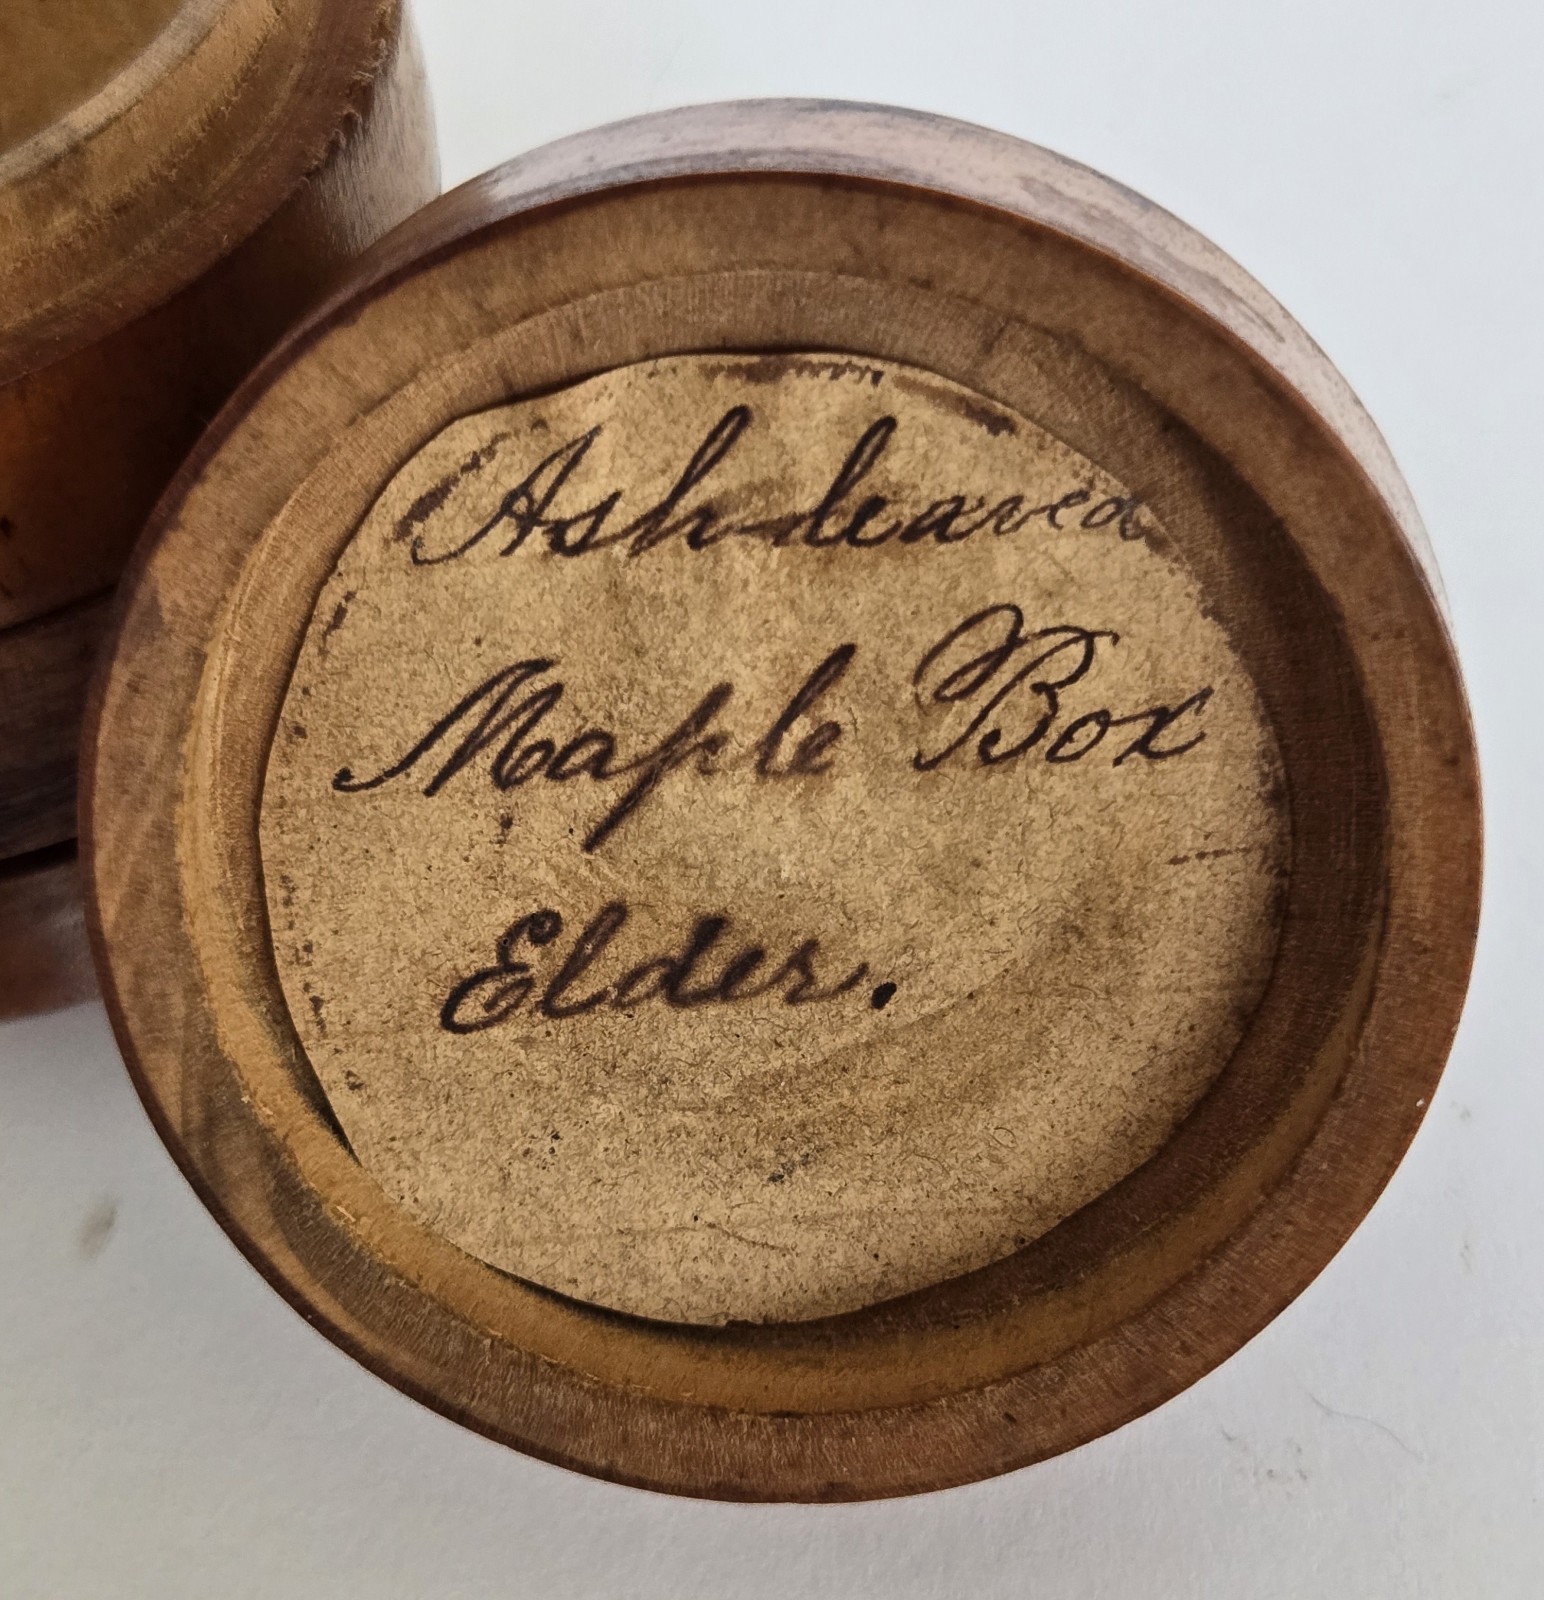 Ash-leaved
Maple Box
Elder.